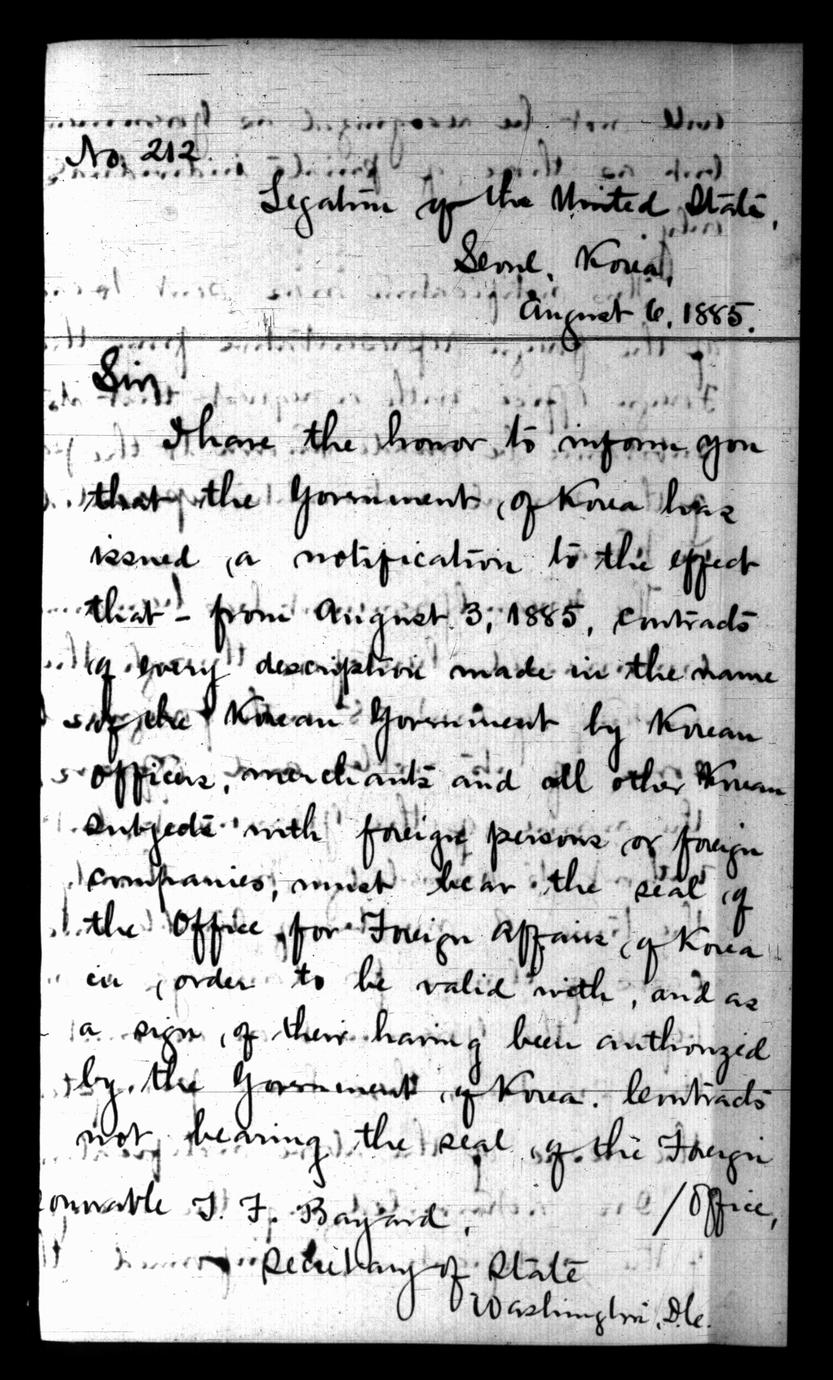 No. 212
Legation of the United States,
Seoul, Korea,
August 6, 1885.
Sir,
I have the honor to inform you
that the Government of Korea has
issued a notification to the effect
that - from August 3, 1885, contracts
of every description made in the name
of the Korean Government by Korean
officers, merchants and all other Korean
subjects with foreign persons or foreign
companies, must bear the seal of
the Office for Foreign Affairs of Korea
in order to be valid with, and as
a sign of their having been authorized
by the Government of Korea. Contracts
not bearing the seal of the Foreign
/Office,
onorable T. F. Bayard,
Secretary of State
Washington, D.C.